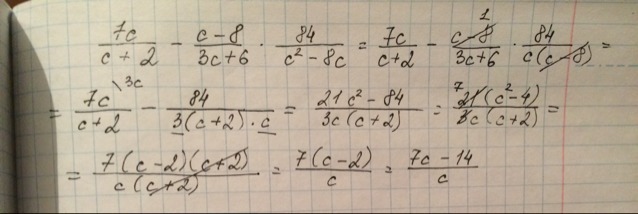 7c/(c + 2) − (c − 8)/(3c + 6) · 84/(c² − 8c) = 7c/(c + 2) − (c − 8)¹/(3c + 6) · 84/(c(c − 8)) =
= 7c\3c/(c + 2) − 84/(3(c + 2) · c) = (21c² − 84)/(3c(c + 2)) = ⁷21(c² − 4)/(3c(c + 2)) =
= 7(c − 2)(c + 2)/(c(c + 2)) = 7(c − 2)/c = (7c − 14)/c